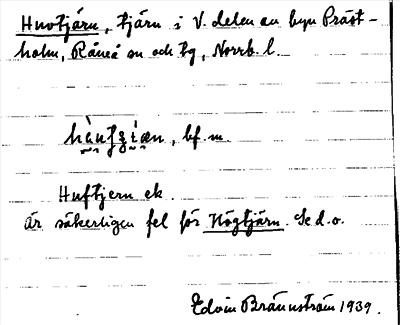 Huvtjärn, tjärn i V. delen av byn Präst-
holm, Råneå sn och tg, Norrb. l.
bf. m.
Huftjern ek.
är säkerligen fel för Högtjärn. Se d. o.
Edvin Brännström 1939.